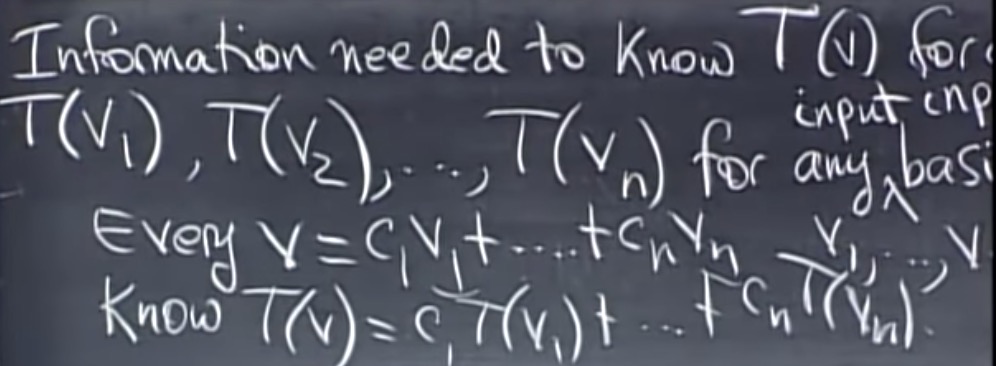 Information needed to know T(v) for
input inp
T(v₁), T(v₂), ..., T(vₙ) for any basi
Every v = c₁v₁ + .... + cₙvₙ v₁, ..., v
Know T(v) = c₁T(v₁) + ... + cₙT(vₙ).